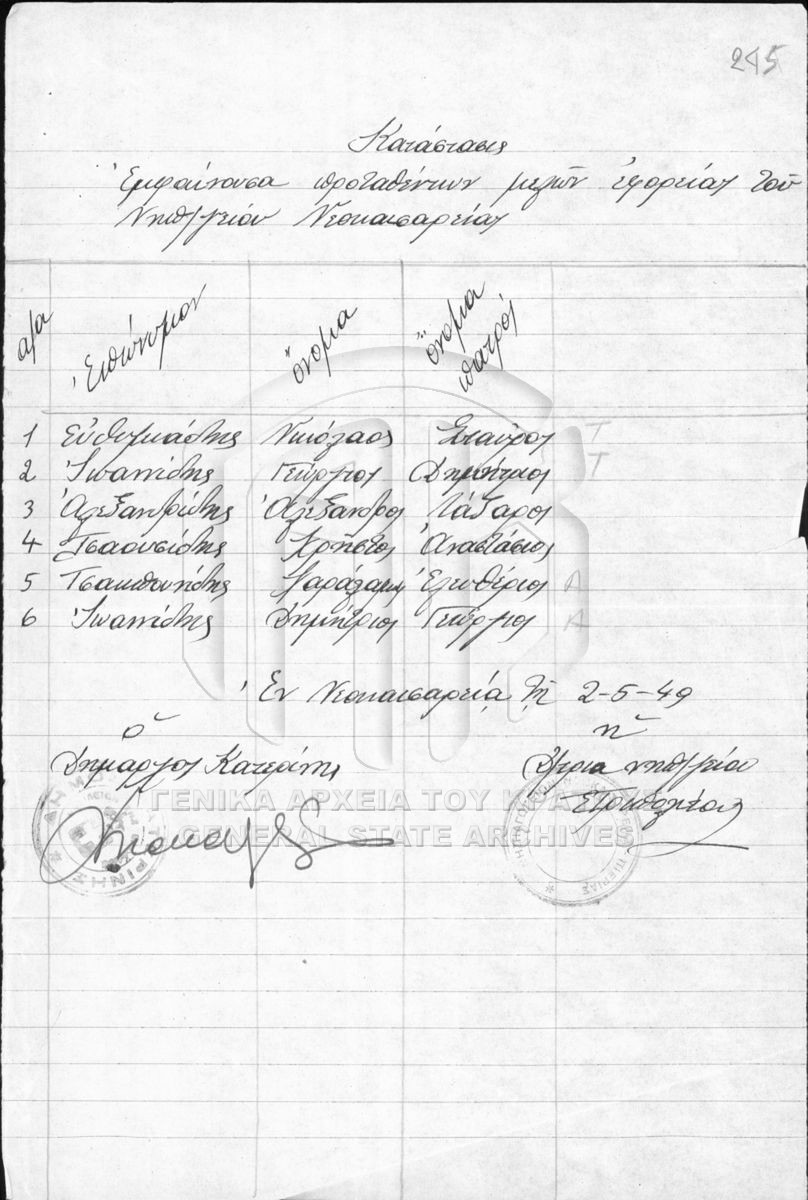 245
Κατάστασις
Ἐμφαίνουσα προταθέντων μελῶν ἐφορείας τοῦ
Νηπ/γείου Νεοκαισαρείας
α/α Ἐπώνυμον ὄνομα ὄνομα πατρός
1 Εὐθυμιάδης Νικόλαος Σταῦρος Τ
2 Ἰωαννίδης Γεώργιος Δημήτριος Τ
3 Ἀλεξανδρίδης Ἀλέξανδρος Λάζαρος
4 Τσαουσίδης Χρῆστος Ἀναστάσιος
5 Τσακπουνίδης Χαράλαμπ Ἐλευθέριος Α
6 Ἰωαννίδης Δημήτριος Γεώργιος Α
Ἐν Νεοκαισαρείᾳ τῇ 2-5-49
ὁ ἡ
Δήμαρχος Κατερίνης Δ/τρια νηπ/γείου
ΓΕΝΙΚΑ ΑΡΧΕΙΑ ΤΟΥ ΚΡΑΤΟΥΣ
GENERAL STATE ARCHIVES